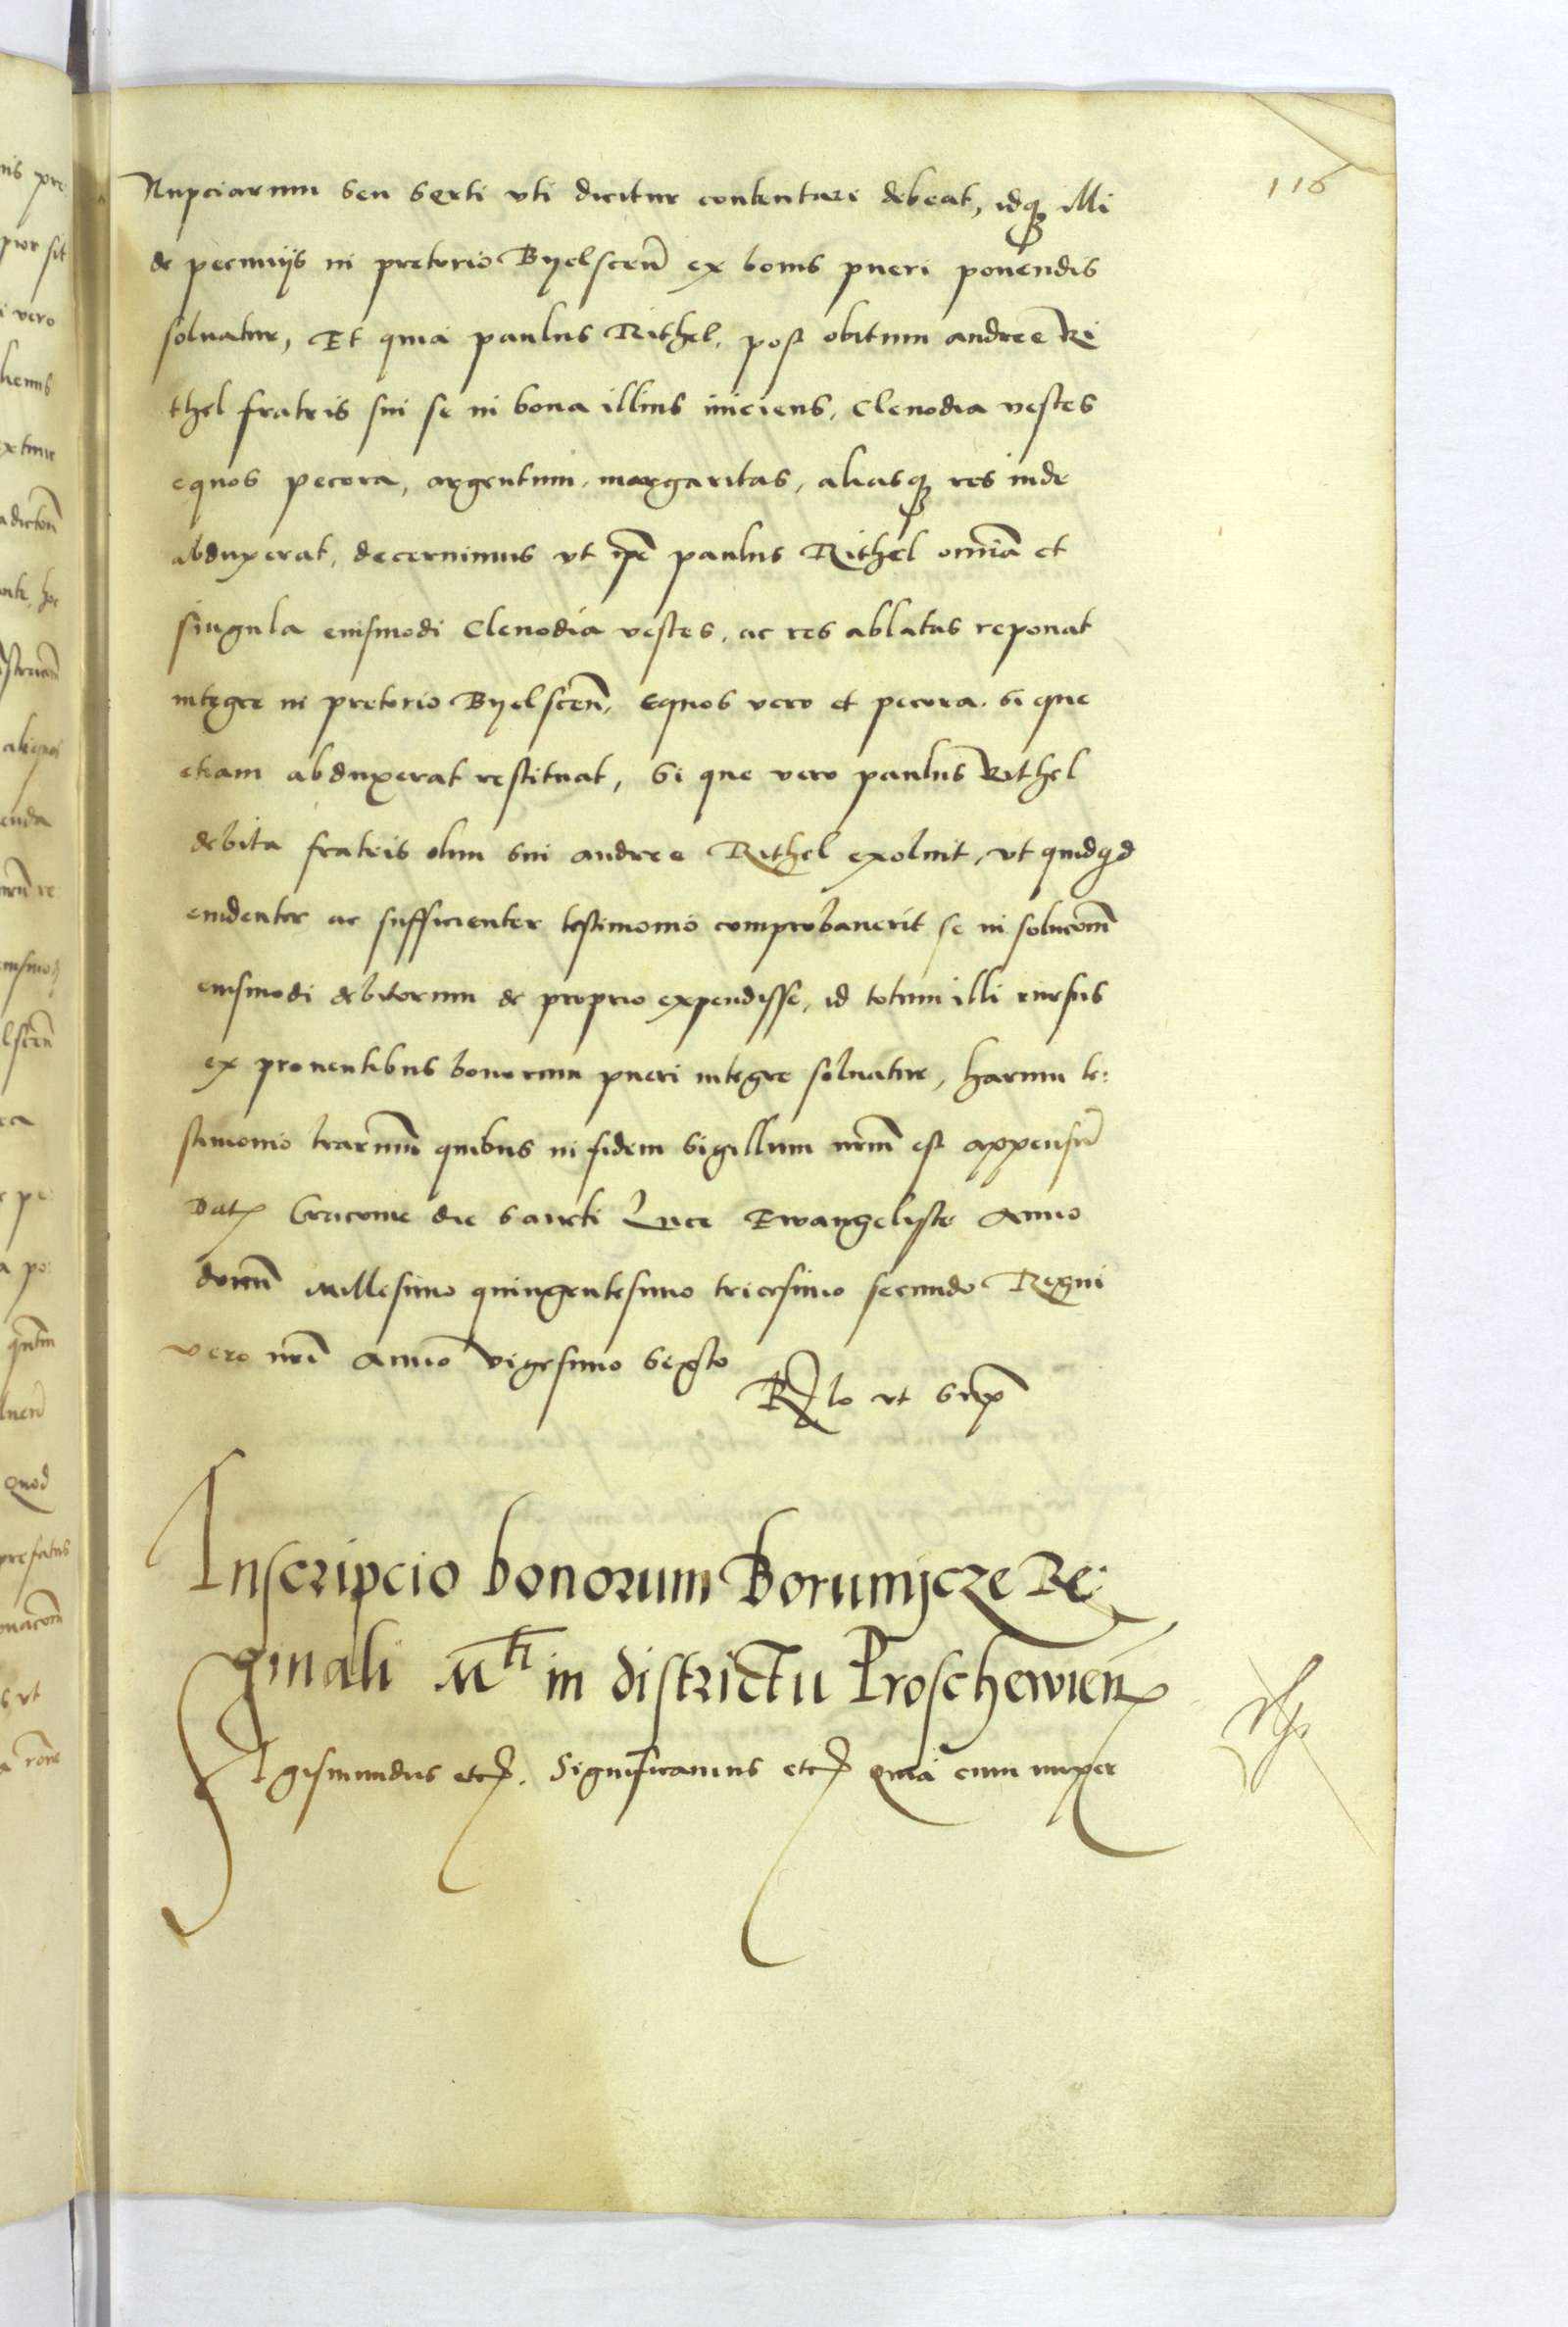 116
Nupciarum seu serti vti dicitur contentari debeat, idq3 illi
de pecunijs in pretorio Byelscen̄ ex bonis pueri ponendis
soluatur, Et quia paulus Rithel, post obitum andree Ri
thel fratris sui se in bona illius iniciens, Clenodia vestes
equos pecora, argentum, margaritas, aliasq3 res inde
abduxerat, decernimus vt ip̄e paulus Rithel omnīa et
singula eiusmodi Clenodia vestes, ac res ablatas reponat
integre in pretorio Byelscen̄, Equos vero et pecora, si que
etiam abduxerat restituat, Si que vero paulus Rithel
debita fratris olim sui andree Rithel exoluit, vt quidq̄d
euidenter ac sufficienter testimonio comprobauerit se in solucōm̄
eiusmodi debitorum de proprio expendisse, id totum illi rursus
ex prouentibus bonorum pueri integre soluatur, harum te:
stimonio lr̄arum quibus in fidem sigillum nr̄m̄ est appensū
Dat Cracouie die sancti Luce Ewangeliste Anno
domī Millesimo quingentesimo tricesimo secundo Regni
vero nrī Anno vigesimo sexto
Rl̄o vt sup̄
Inscripcio bonorum Borumycze Re:
ginali Mti in districtu Proschewien̄
Sigismundus etc. Significamus etc Quia cum nuper